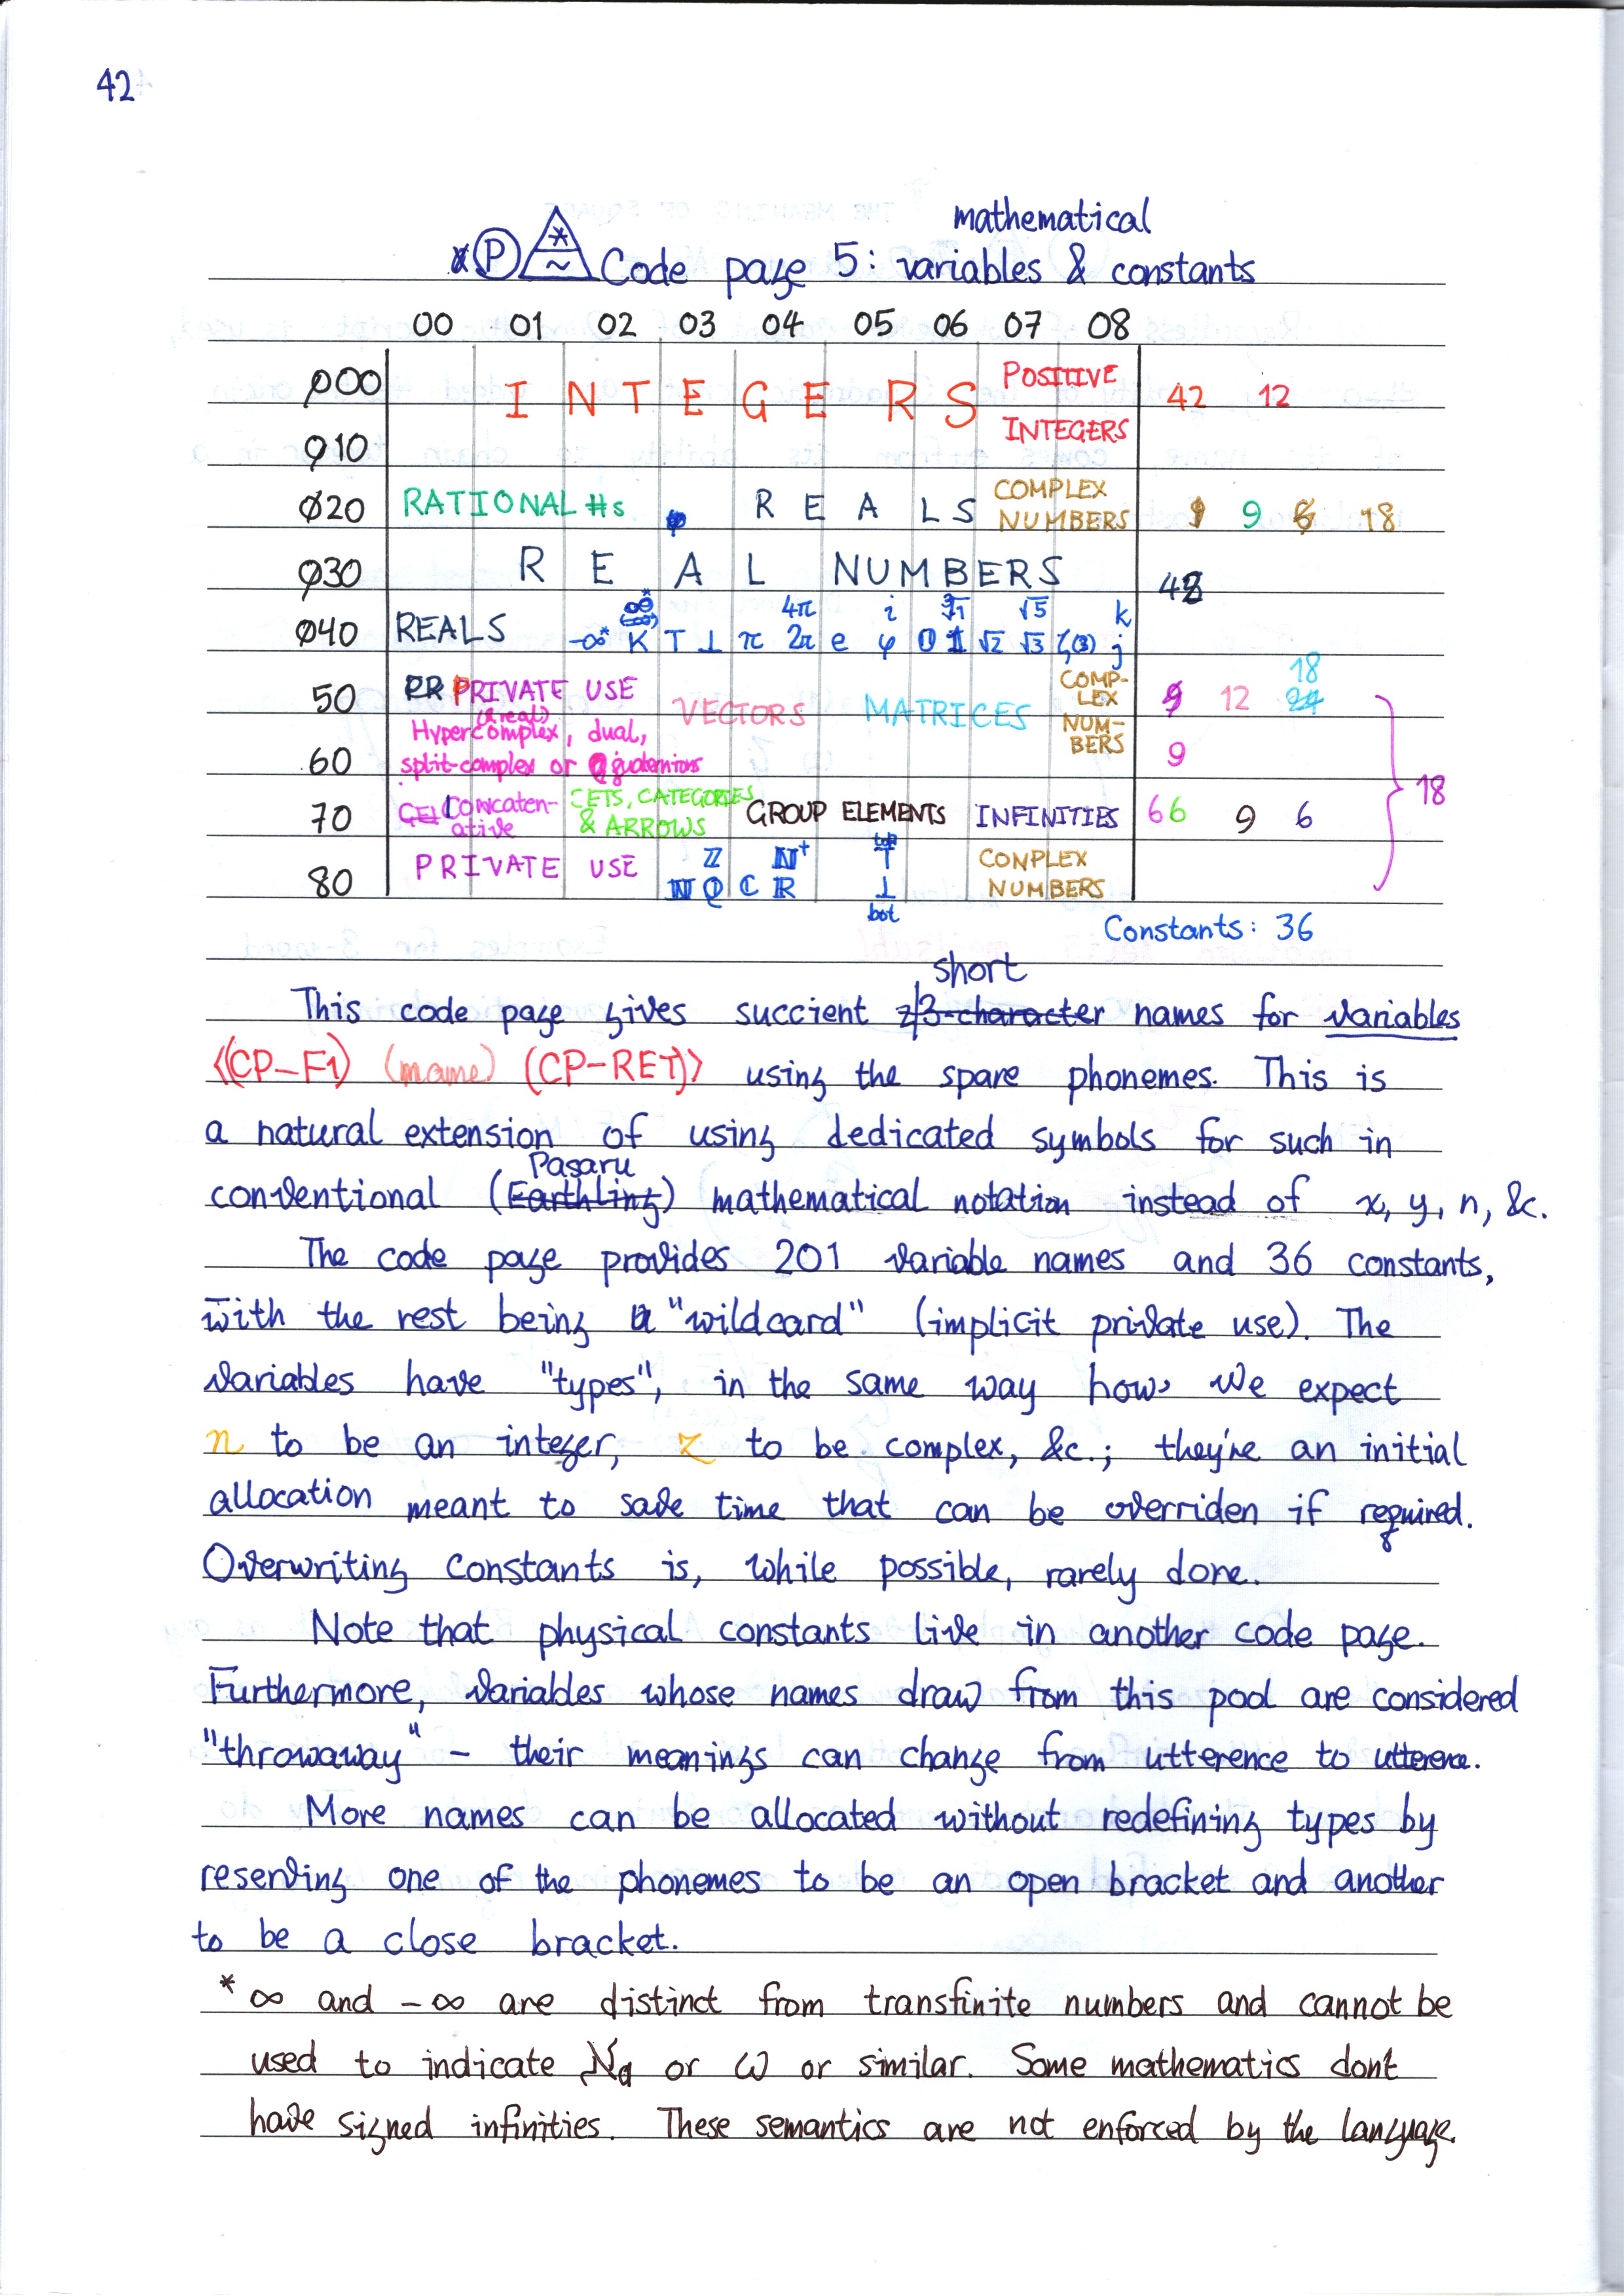 42
mathematical
P * ~ Code page 5: variables & constants
00 01 02 03 04 05 06 07 08
000 INTEGERS POSITIVE 42 12
010 INTEGERS
020 RATIONAL #s REALS COMPLEX NUMBERS 9 6 18
030 REAL NUMBERS 48
4π i ∛1 √5 k
040 REALS -∞* K T ⊥ π 2π e φ 0 1 √2 √3 ζ(3) j
50 PRIVATE USE VECTORS MATRICES COMP-LEX NUM-BERS 9 12 18 24
Hypercomplex, (2 real) dual,
60 split-complex or quaternions 9
70 Concaten-ative CETS, CATEGORIES & ARROWS GROUP ELEMENTS INFINITIES 66 9 6 18
ℤ ℕ⁺ top ⊤
80 PRIVATE USE ℕ ℚ ℂ ℝ ⊥ CONPLEX NUMBERS
bot
Constants: 36
short
This code page gives succient 2/3-character names for variables
⟨(CP-F1) (name) (CP-RET)⟩ using the spare phonemes. This is
a natural extension of using dedicated symbols for such in
Pasaru
conventional (Earthling) mathematical notation instead of x, y, n, &c.
The code page provides 201 variable names and 36 constants,
with the rest being "wildcard" (implicit private use). The
variables have "types", in the same way how we expect
n to be an integer, z to be complex, &c.; they're an initial
allocation meant to save time that can be overriden if required.
Overwriting constants is, while possible, rarely done.
Note that physical constants live in another code page.
Furthermore, variables whose names draw from this pool are considered
"throwaway" – their meanings can change from utterence to utterence.
More names can be allocated without redefining types by
reserving one of the phonemes to be an open bracket and another
to be a close bracket.
* ∞ and -∞ are distinct from transfinite numbers and cannot be
used to indicate ℵₐ or ω or similar. Some mathematics dont
have signed infinities. These semantics are not enforced by the language.